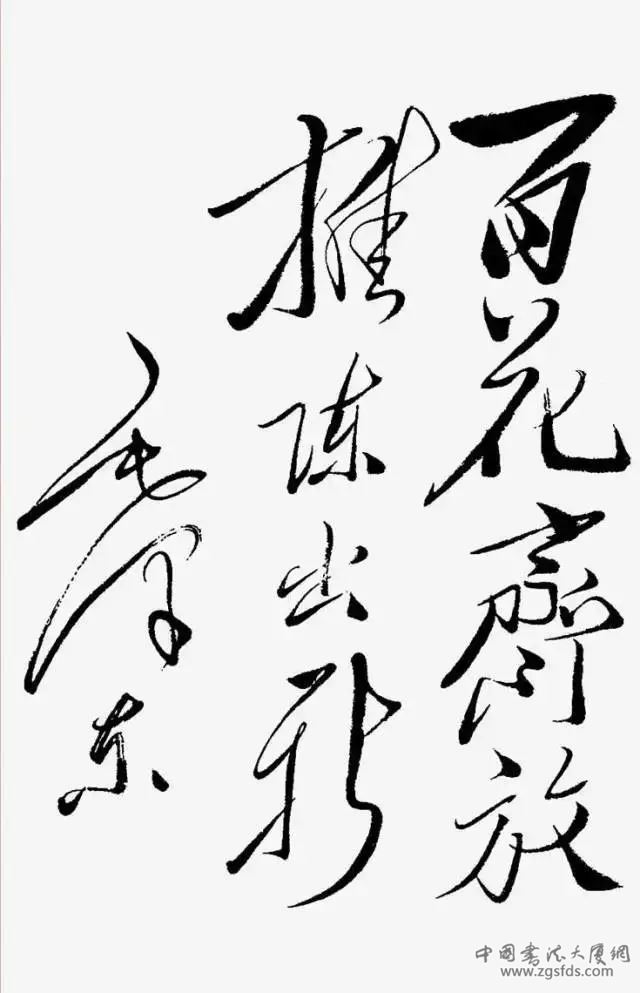 百花齊放
推陈出新
毛泽东
中国书法大厦網
www.zgsfds.com